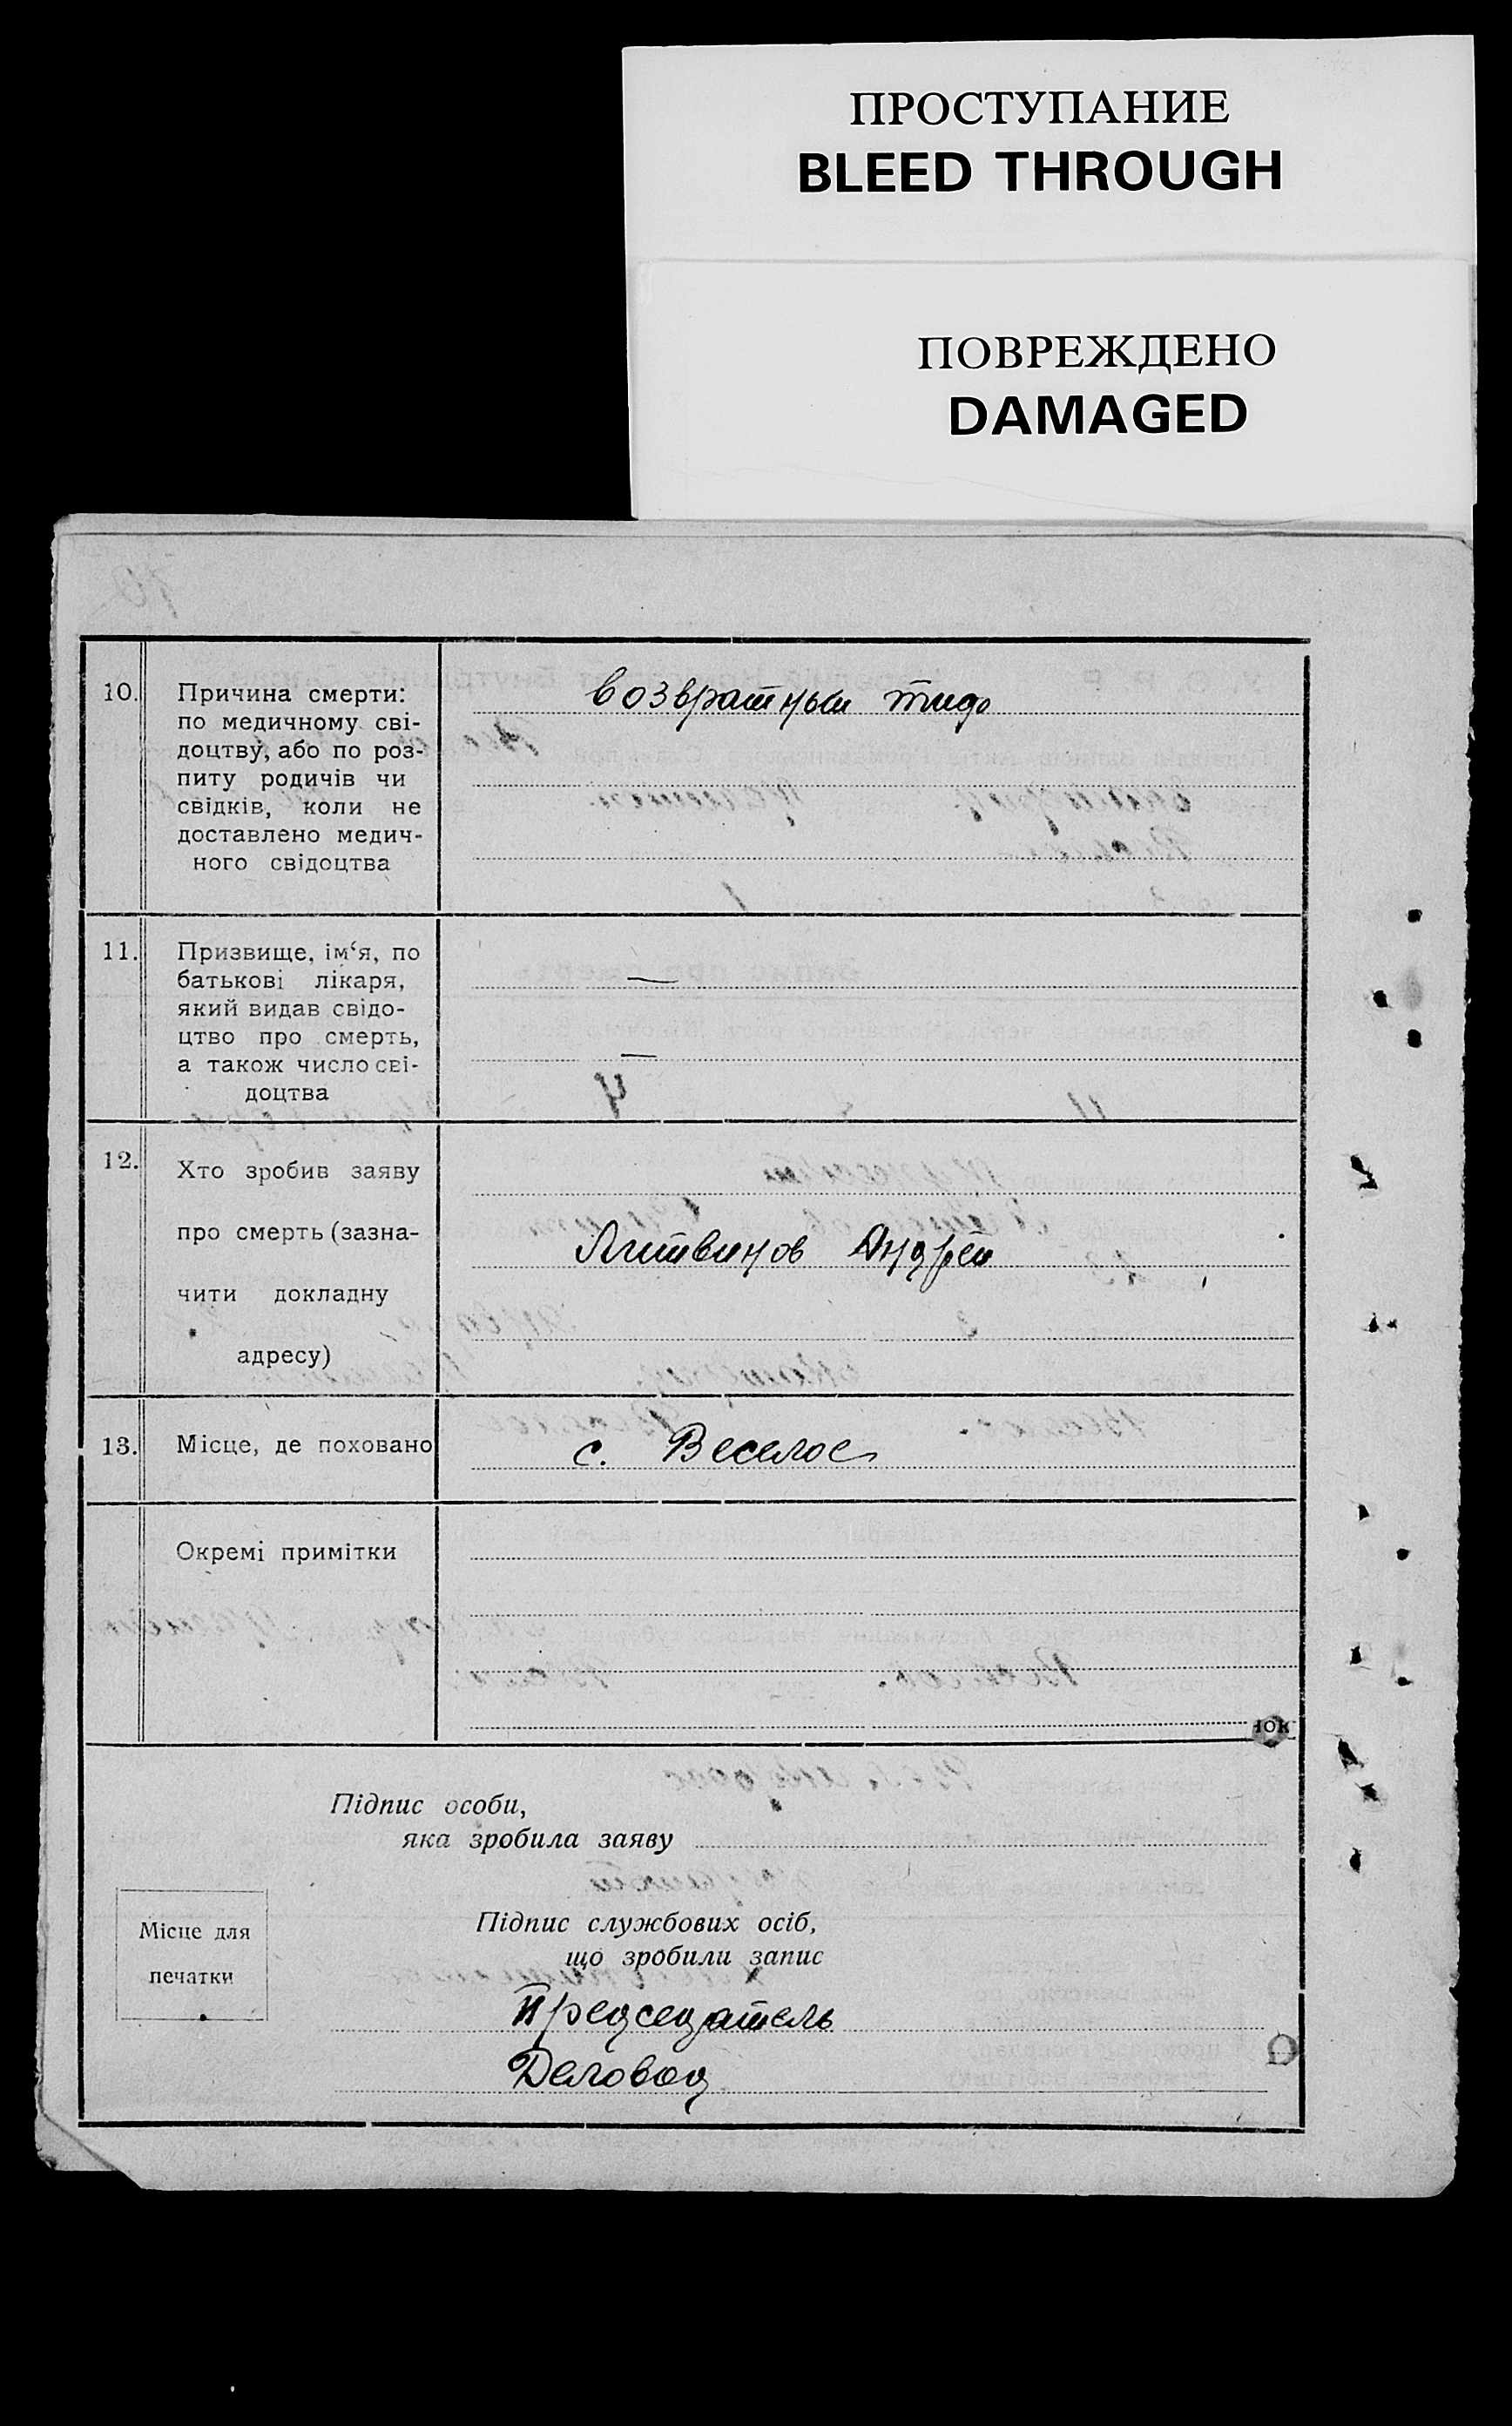 ПРОСТУПАНИЕ
BLEED THROUGH
ПОВРЕЖДЕНО
DAMAGED
10. Причина смерти:
по медичному сві-
доцтву, або по роз-
питу родичів чи
свідків, коли не
доставлено медич-
ного свідоцтва
возвратный тиф
11. Призвище, ім‘я, по
батькові лікаря,
який видав свідо-
цтво про смерть,
а також число сві-
доцтва
—
—
12. Хто зробив заяву
про смерть (зазна-
чити докладну
адресу)
Литвинов Андрей
13. Місце, де поховано
с. Веселое
Окремі примітки
нок
Підпис особи,
яка зробила заяву
Місце для
печатки
Підпис службових осіб,
що зробили запис
Председатель
Деловод